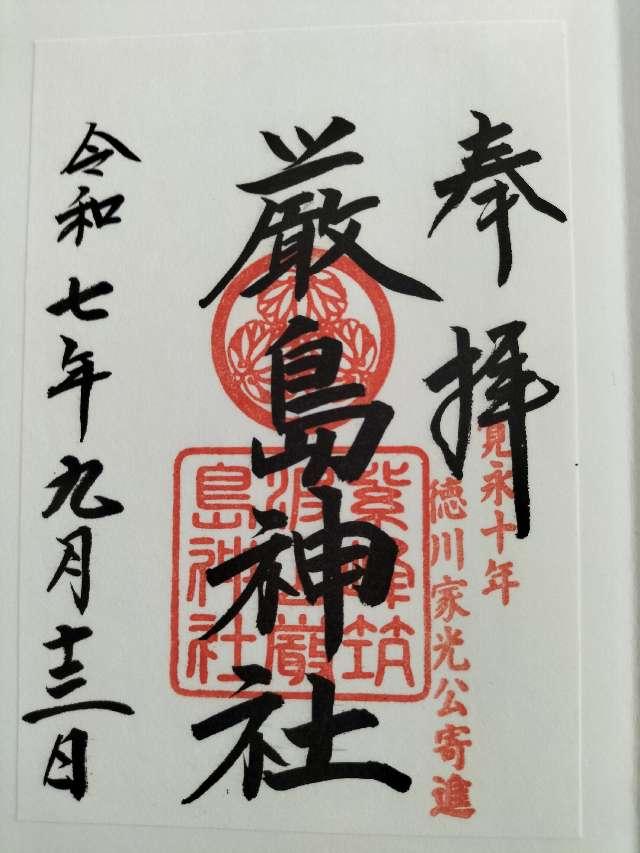 奉拝
寛永十年
徳川家光公寄進
厳島神社
紫峰筑
波山厳
島神社
令和七年九月十三日